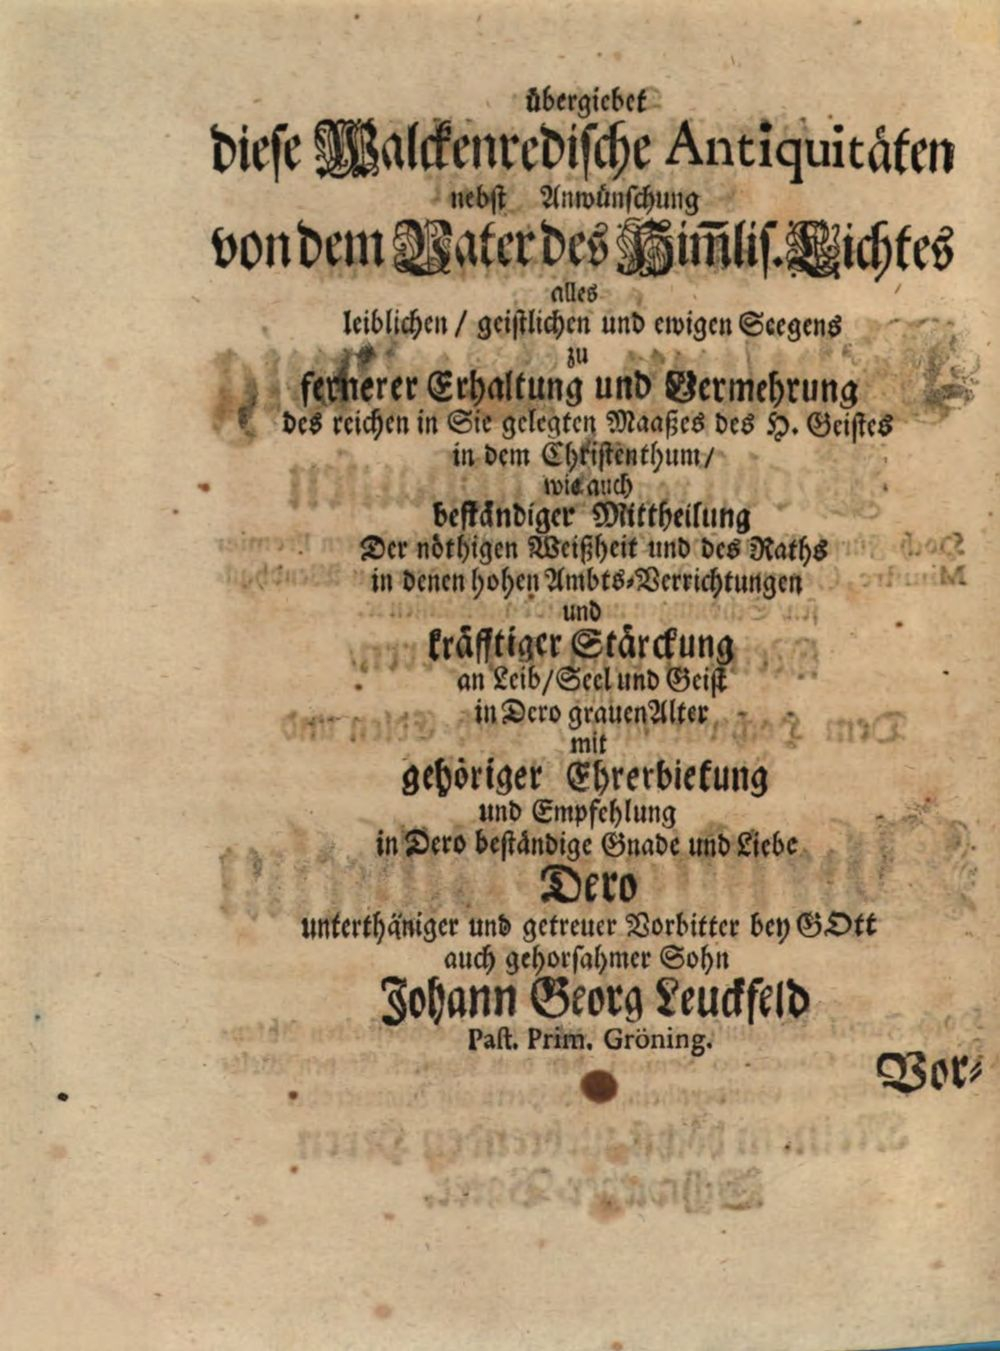 übergiebet
diese Walckenredische Antiquitäten
nebst Anwünschung
von dem Vater des Him̅lis. Lichtes
alles
leiblichen / geistlichen und ewigen Seegens
zu
fernerer Erhaltung und Vermehrung
des reichen in Sie gelegten Maaßes des H. Geistes
in dem Christenthum /
wie auch
beständiger Mittheilung
Der nöthigen Weißheit und des Raths
in denen hohen Ambts-Verrichtungen
und
kräfftiger Stärckung
an Leib / Seel und Geist
in Dero grauen Alter
mit
gehöriger Ehrerbietung
und Empfehlung
in Dero beständige Gnade und Liebe
Dero
unterthäniger und getreuer Vorbitter bey GOtt
auch gehorsahmer Sohn
Johann Georg Leuckfeld
Past. Prim. Gröning.
Vor-